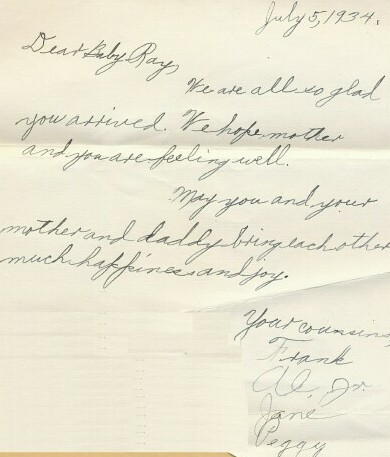 July 5, 1934.
Dear Baby Ray,
We are all so glad
you arrived. We hope mother
and you are feeling well.
May you and your
mother and daddy bring each other
much happiness and joy.
Your counsins
Frank
Al, Jr.
Jane
Peggy